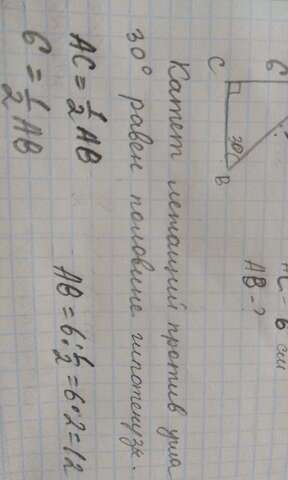 C
6
30°
B
AC = 6 см
AB - ?
Катет лежащий против угла
30° равен половине гипотенузы.
AC = 1/2 AB
6 = 1/2 AB
AB = 6 : 1/2 = 6 · 2 = 12